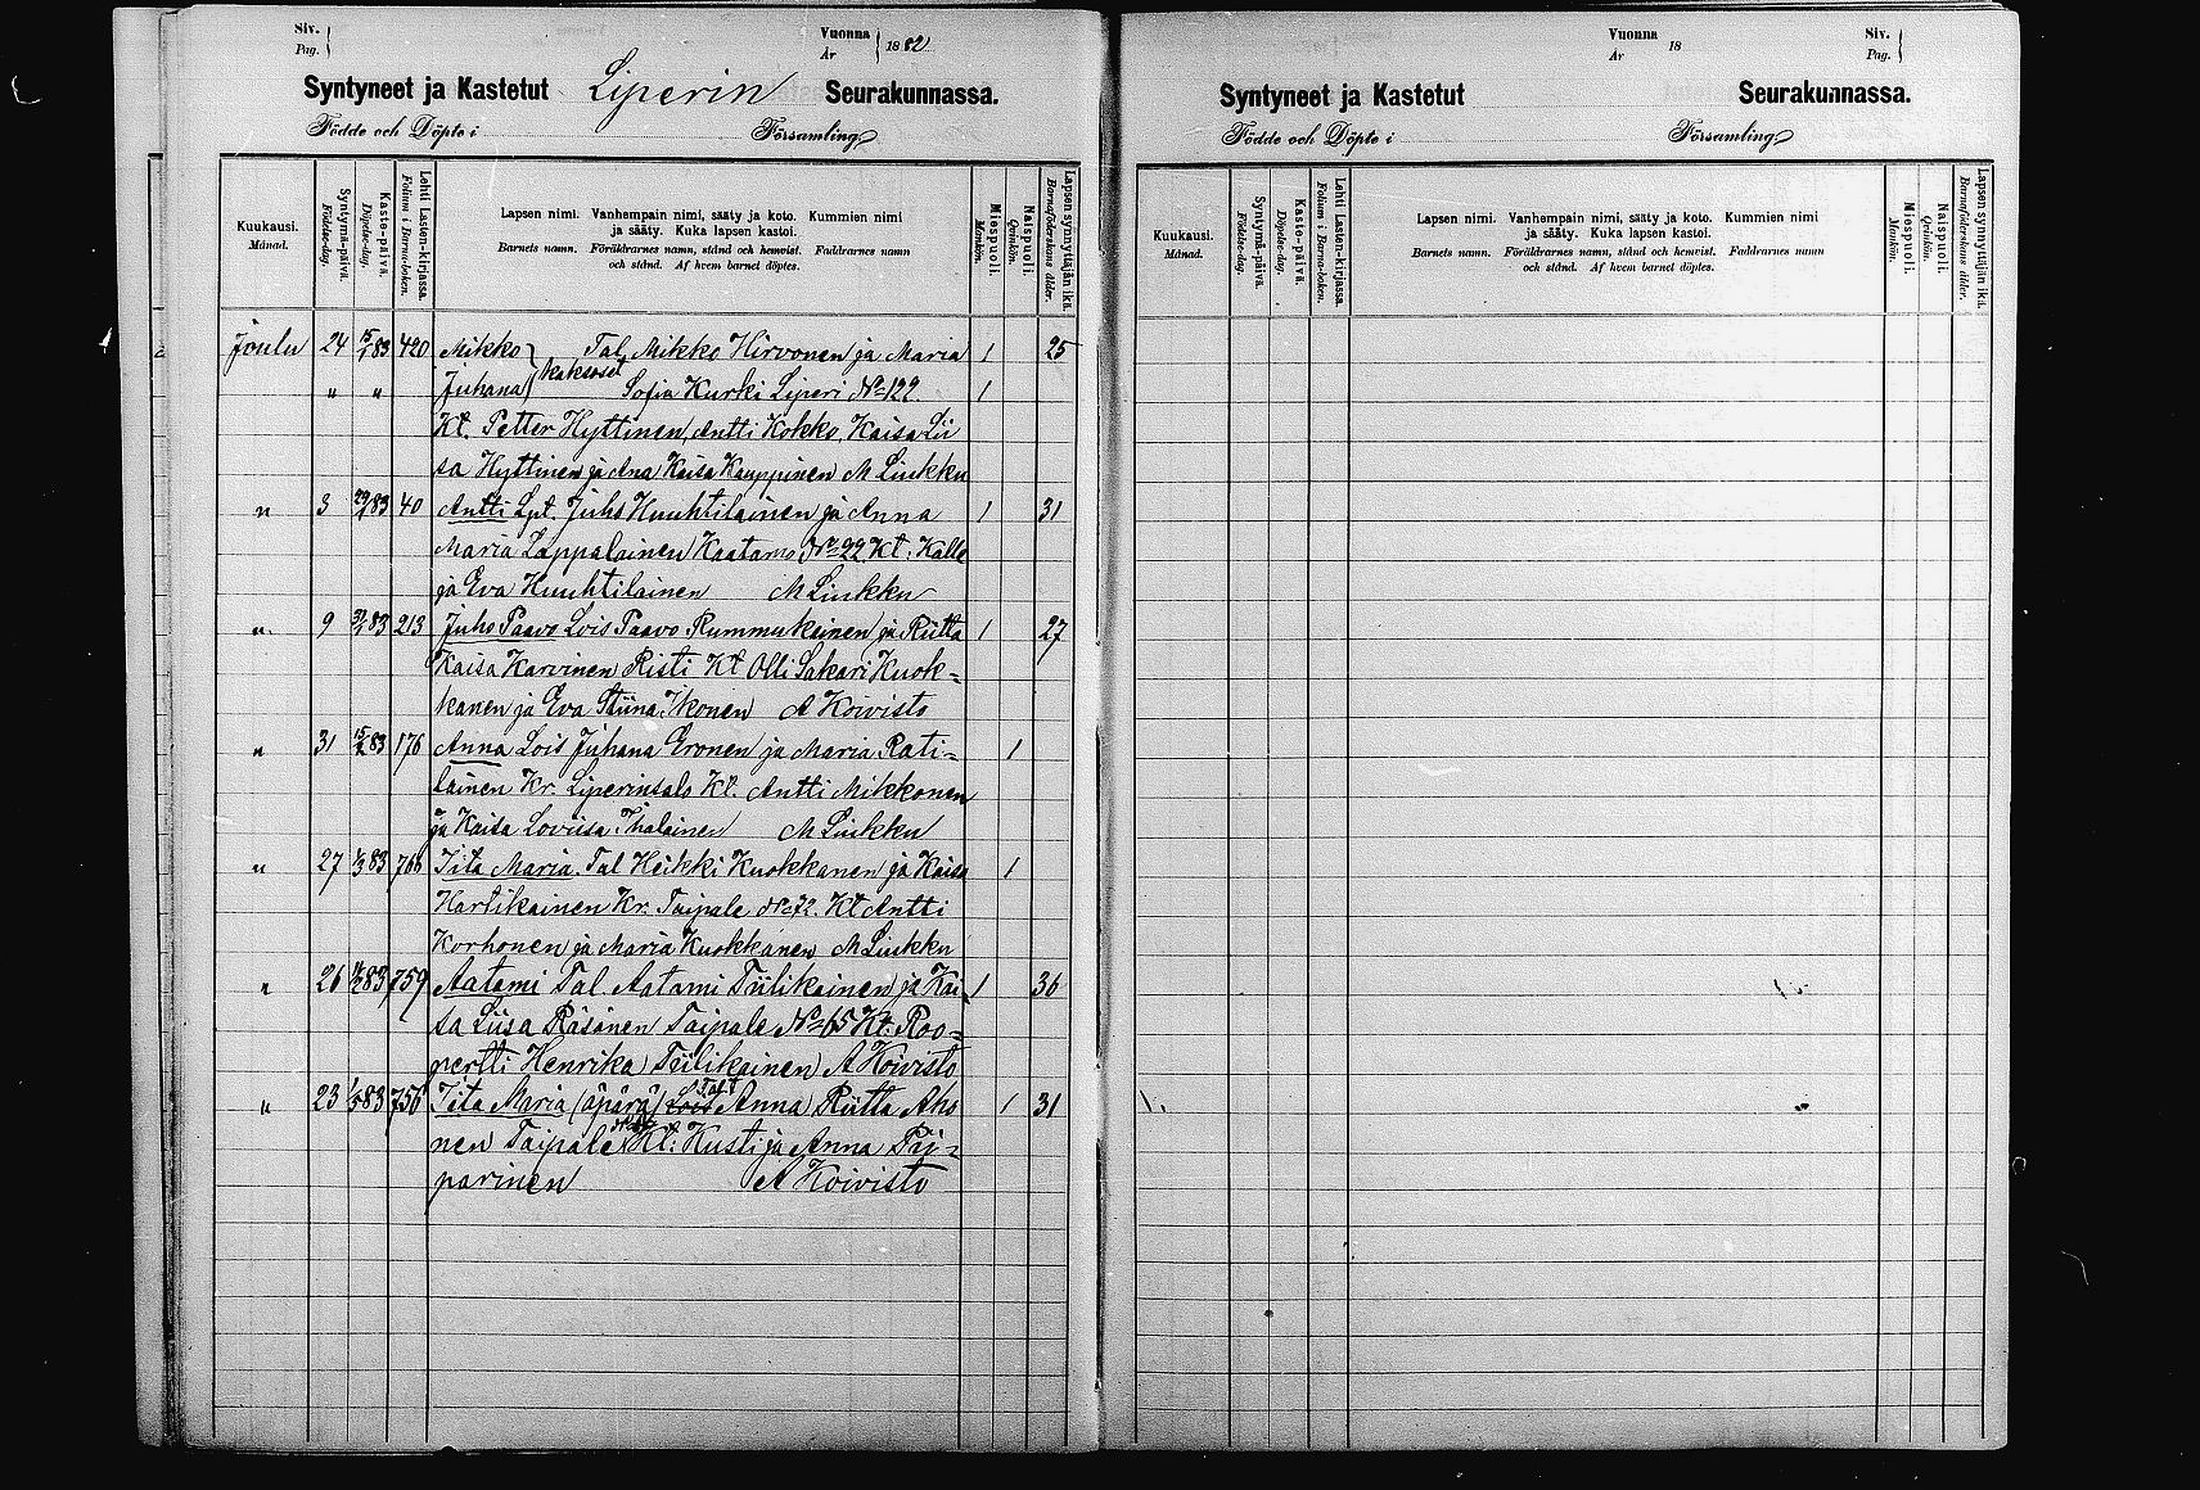 Siv.
Pag.
Vuonna
År
1882
Syntyneet ja Kastetut Liperin Seurakunnassa.
Födde och Döpte i Församling
Kuukausi.
Månad.
Syntymä-päivä.
Födelse-dag.
Kaste-päivä.
Döpelse-dag.
Lehti Lasten-kirjassa.
Folium i Barna-boken.
Lapsen nimi. Vanhempain nimi, sääty ja koto. Kummien nimi
ja sääty. Kuka lapsen kastoi.
Barnets namn. Föräldrarnes namn, stånd och hemvist. Faddrarnes namn
och stånd. Af hvem barnet döptes.
Miespuoli.
Mankön.
Naispuoli.
Qvinkön.
Lapsen synnyttäjän ikä.
Barnaföderskans ålder.
Joulu 24 15/1 83 420 Mikko Tal. Mikko Hirvonen ja Maria 1 25
kaksoset
" " Juhana Sofia Kurki Liperi No 122. 1
Kt. Petter Hyttinen, Antti Kokko, Kaisa Lii
sa Hyttinen ja Ana Kaisa Kauppinen M Liukku
" 3 83 40 Antti Lpt. Juho Huuhtilainen ja Anna 1 31
Maria Lappalainen Kaatamo No 22. Kt. Kalle
ja Eva Huuhtilainen M Liukku
" 9 83 213 Juho Paavo Lois Paavo Rummukainen ja Riitta 1 27
Kaisa Karvinen Risti Kt Olli Sakari Kuok=
kanen ja Eva Stiina Ikonen A Koivisto
" 31 83 176 Anna Lois Juhana Eronen ja Maria Rati= 1
lainen Kr. Liperinsalo Kt. Antti Mikkonen
ja Kaisa Loviisa Ihalainen M Liukku
" 27 1/3 83 766 Iita Maria. Tal Heikki Kuokkanen ja Kaisa 1
Hartikainen Kr. Taipale No 72. Kt Antti
Korhonen ja Maria Kuokkanen M Liukku
" 26 83 759 Aatami Tal. Aatami Tiilikainen ja Kai 1 36
sa Liisa Räsänen Taipale No 65 Kt. Roo=
pertti Henrika Tiilikainen A Koivisto
Tal t
" 23 1/5 83 756 Iita Maria (äpärä) Lois Anna Riitta Aho 1 31
nen Taipale Kt: Kusti ja Anna Pii=
parinen A Koivisto
Vuonna
År
18
Siv.
Pag.
Syntyneet ja Kastetut Seurakunnassa.
Födde och Döpte i Församling
Kuukausi.
Månad.
Syntymä-päivä.
Födelse-dag.
Kaste-päivä.
Döpelse-dag.
Lehti Lasten-kirjassa.
Folium i Barna-boken.
Lapsen nimi. Vanhempain nimi, sääty ja koto. Kummien nimi
ja sääty. Kuka lapsen kastoi.
Barnets namn. Föräldrarnes namn, stånd och hemvist. Faddrarnes namn
och stånd. Af hvem barnet döptes.
Miespuoli.
Mankön.
Naispuoli.
Qvinkön.
Lapsen synnyttäjän ikä.
Barnaföderskans ålder.